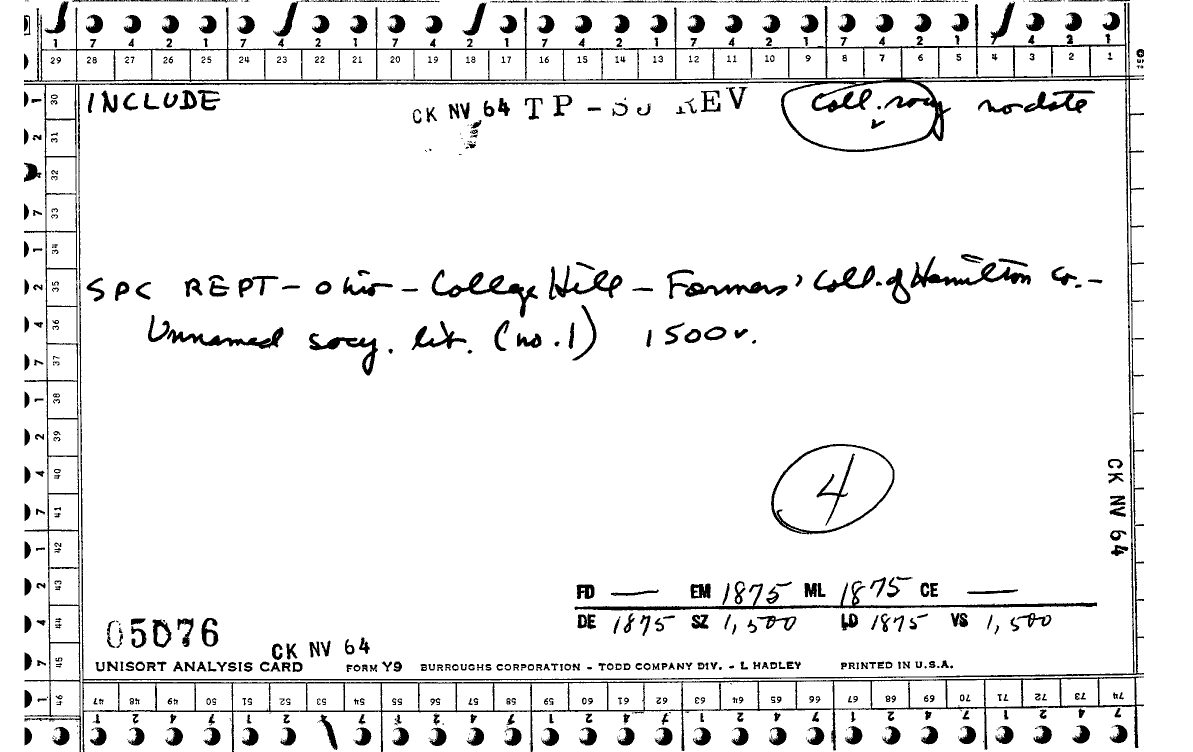 7 4 2 1 7 4 2 1 7 4 2 1 7 4 2 1 7 4 2 1 7 4 2 1 7 4 2 1
29 28 27 26 25 24 23 22 21 20 19 18 17 16 15 14 13 12 11 10 9 8 7 6 5 4 3 2 1
INCLUDE CK NV 64 TP - REV Coll. socy no date
SPC REPT - Ohio - College Hill - Farmers' Coll. of Hamilton Co. -
Unnamed socy. lit. (no. 1) 1500 v.
4
CK NV 64
FD — EM 1875 ML 1875 CE —
DE 1875 SZ 1,500 LD 1875 VS 1,500
05076 CK NV 64
UNISORT ANALYSIS CARD FORM Y9 BURROUGHS CORPORATION - TODD COMPANY DIV. - L HADLEY PRINTED IN U.S.A.
30 31 32 33 34 35 36 37 38 39 40 41 42 43 44 45 46
47 48 49 50 51 52 53 54 55 56 57 58 59 60 61 62 63 64 65 66 67 68 69 70 71 72 73 74